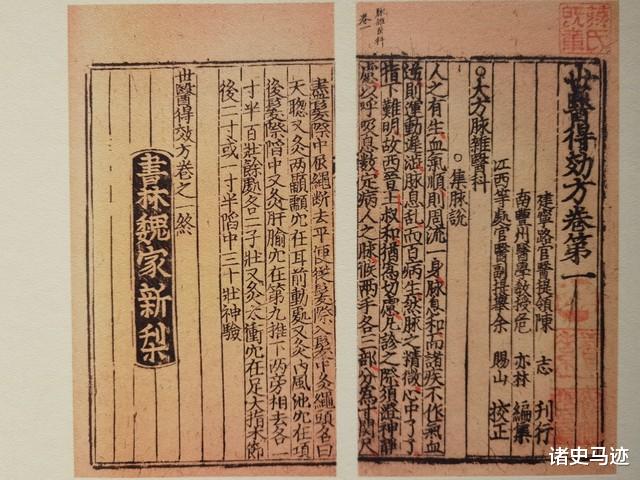 脉雜医科
卷一
世醫得効方卷第一
建寧路官醫提領陳 志 刊行
南豐州醫學教授危 亦林 編集
江西等處官醫副提舉余 賜山 校正
○大方脉雜醫科
○集脉說
人之有生血氣順則周流一身脉息和而諸疾不作氣血
逆則運動違涩脉息乱而百病生然脉之精微心中了了
指下難明故西晉王叔和猶爲切慮凡診之際須澄神静
慮以呼吸息數定病人之脉候两手各三部分爲寸関尺
髮際中繩断去平後髮際入髮中灸繩頭名曰
天聡又灸两顳顬穴在耳前動處又灸風池穴在項
後髮際階中又灸肝腧穴在第九推下两旁相去各一
寸半百壯餘處各二七壯又灸太衝穴在足大指本節
後二寸或一寸半陷中三十壯神驗
世醫得效方卷之一
書林魏家新梨
诸史马迹